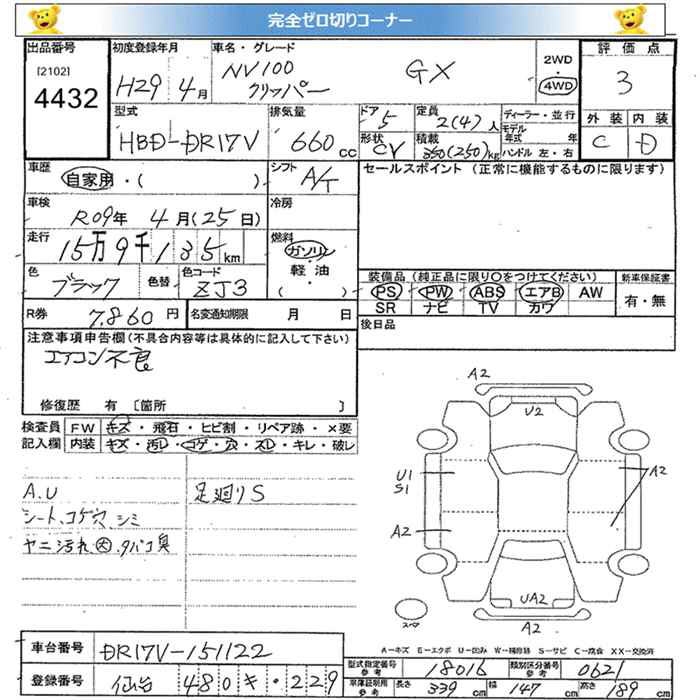 完全ゼロ切りコーナー
出品番号
[2102]
4432
初度登録年月
H29年 4月
車名・グレード
NV100
クリッパー
GX
2WD
・
4WD
評価点
3
外装 内装
C D
型式
HBD-DR17V
排気量
660cc
ドア
5
形状
CV
定員
2(4)人
積載
350(250)kg
ディーラー・並行
モデル
年式 年
ハンドル 左・右
車歴
自家用・( )
シフト
A/T
セールスポイント(正常に機能するものに限ります)
車検
R09年 4月(25日)
冷房
走行
15万9千135km
燃料
ガソリン
・
軽・油
( )
色
ブラック
色替
色コード
ZJ3
装備品(純正品に限り○をつけてください)
PS PW ABS エアB AW
SR ナビ TV カワ
新車保証書
有・無
R券
7,860円
名変通知期限 月 日
後日品
注意事項申告欄(不具合内容等は具体的に記入して下さい)
エアコン不良
修復歴 有〔箇所 〕
検査員
記入欄
FW キズ・飛石・ヒビ割・リペア跡・×要
内装 キズ・汚レ・コゲ・穴・スレ・キレ・破レ
A.U
シート、コゲ穴、シミ
ヤニ汚れ大、タバコ臭
足廻りS
A2
U2
U1
S1
A2
A2
UA2
A2
スペア
A−キズ E−エクボ U−凹み W−補修跡 S−サビ C−腐食 XX−交換済
車台番号
DR17V-151122
登録番号
仙台 480 キ・229
型式指定番号
参考
18016
類別区分番号
参考
0621
車庫証明用
参考
長さ 339cm 幅 147cm 高さ 189cm